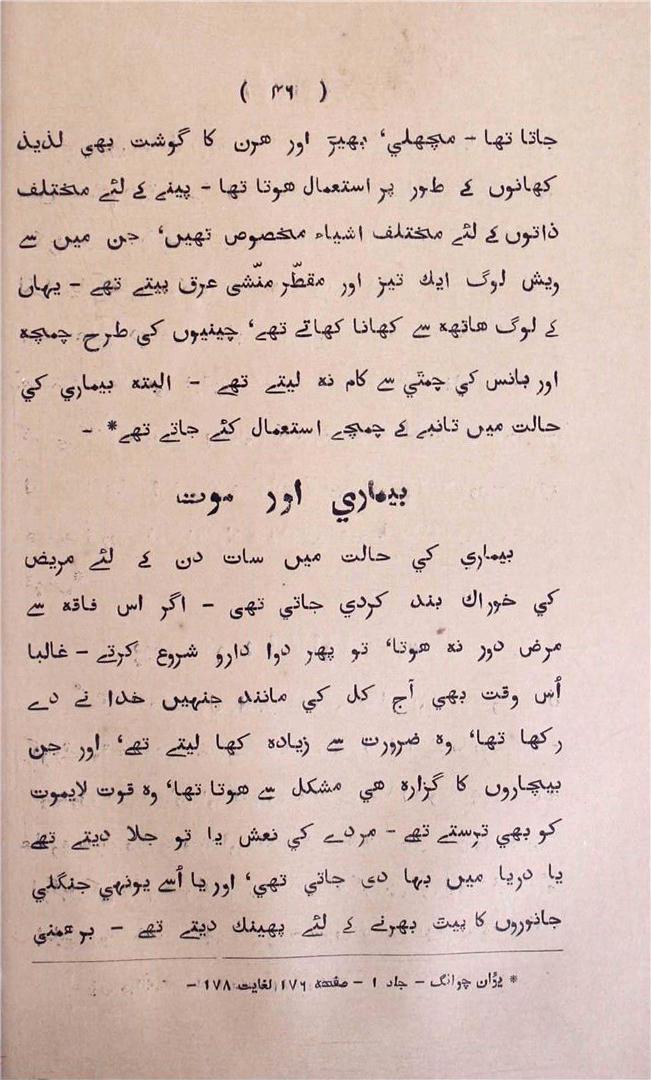 ( ۴۶ )
جاتا تھا - مچھلي، بھیڑ اور ھرن کا گوشت بھی لذیذ
کھانوں کے طور پر استعمال ھوتا تھا - پینے کے لئے مختلف
ذاتوں کے لئے مختلف اشیاء مخصوص تھیں، جن میں سے
ویش لوگ ایك تیز اور مقطّر منّشی عرق پیتے تھے - یہاں
کے لوگ ھاتھہ سے کھانا کھاتے تھے، چینیوں کی طرح چمچہ
اور بانس کي چمٹي سے کام نہ لیتے تھے - البتہ بیماري کي
حالت میں تانبے کے چمچے استعمال کئے جاتے تھے* -
بیماري اور موت
بیماري کي حالت میں سات دن کے لئے مریض
کي خوراك بند کردي جاتي تھی - اگر اس فاقہ سے
مرض دور نہ ھوتا، تو پھر دوا دارو شروع کرتے - غالبا
اُس وقت بھي آج کل کي مانند جنہیں خدا نے دے
رکھا تھا، وہ ضرورت سے زیادہ کھا لیتے تھے، اور جن
بیچاروں کا گزارہ ھي مشکل سے ھوتا تھا، وہ قوت لایموت
کو بھي ترستے تھے - مردے کي نعش یا تو جلا دیتے تھے
یا دریا میں بہا دی جاتي تھي، اور یا اُسے یونہي جنگلي
جانوروں کا پیٹ بھرنے کے لئے پھینك دیتے تھے - برھمني
* یوُان چوانگ - جلد ۱ - صفحہ ۱۷۶ لغایت ۱۷۸ -